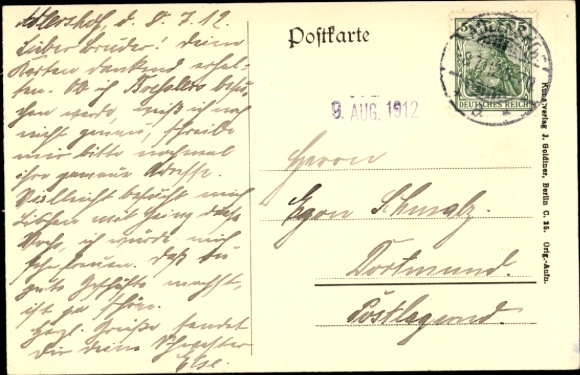 Adlershof d. 8.7.12.
Lieber Bruder! Deine
Karten dankend erhal-
ten. Ob ich besu-
chen werde, weiß ich noch
nicht genau, schreibe
mir bitte nochmal
ihre genaue Adresse.
Vielleicht besucht mich
mit Heinz diese
Woche, ich würde mich
sehr freuen. Daß du
gute Geschäfte machst,
ist ja schön.
Herzl. Grüße sendet
Dir deine Schwester
Else.
Postkarte
9. AUG. 1912
DEUTSCHES REICH
Herrn
Egon Schmalz.
Dortmund.
Postlagernd.
Kunstverlag J. Goldiner, Berlin C. 25. Orig.-Aufn.